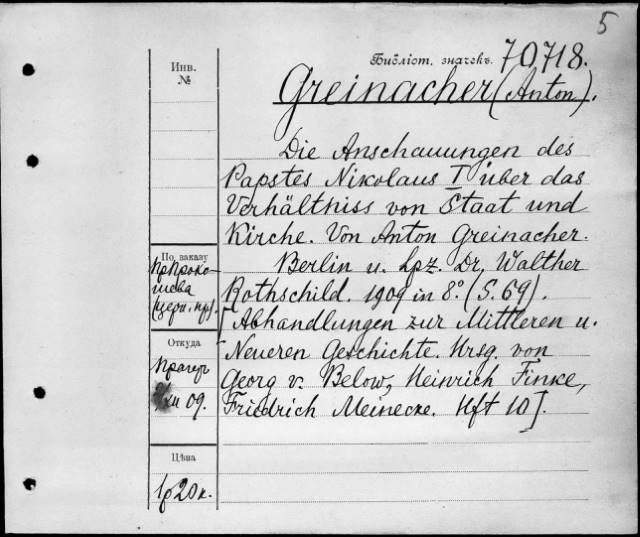 5
Библіот. значекъ 70,718.
Инв.
№
Greinacher (Anton).
Die Anschauungen des
Papstes Nikolaus I über das
Verhältniss von Staat und
Kirche. Von Anton Greinacher.
Berlin u. Lpz. Dr. Walther
Rothschild. 1909 in 8°. (S. 69).
[Abhandlungen zur Mittleren u.
Neueren Geschichte. Hrsg. von
Georg v. Below, Heinrich Finke,
Friedrich Meinecke. Hft 10].
По заказу
(церк. пр).
Откуда
XII 09.
Цѣна
1р 20к.